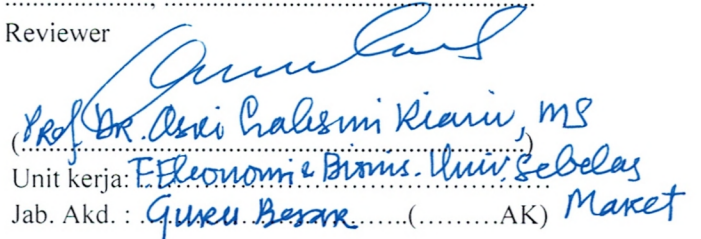 ....................., ........................................
Reviewer
(Prof. DR. Asri Laksmi Riani, MS)
Unit kerja: F. Ekonomi & Bisnis. Univ. Sebelas Maret
Jab. Akd. : Guru Besar.......(.........AK)